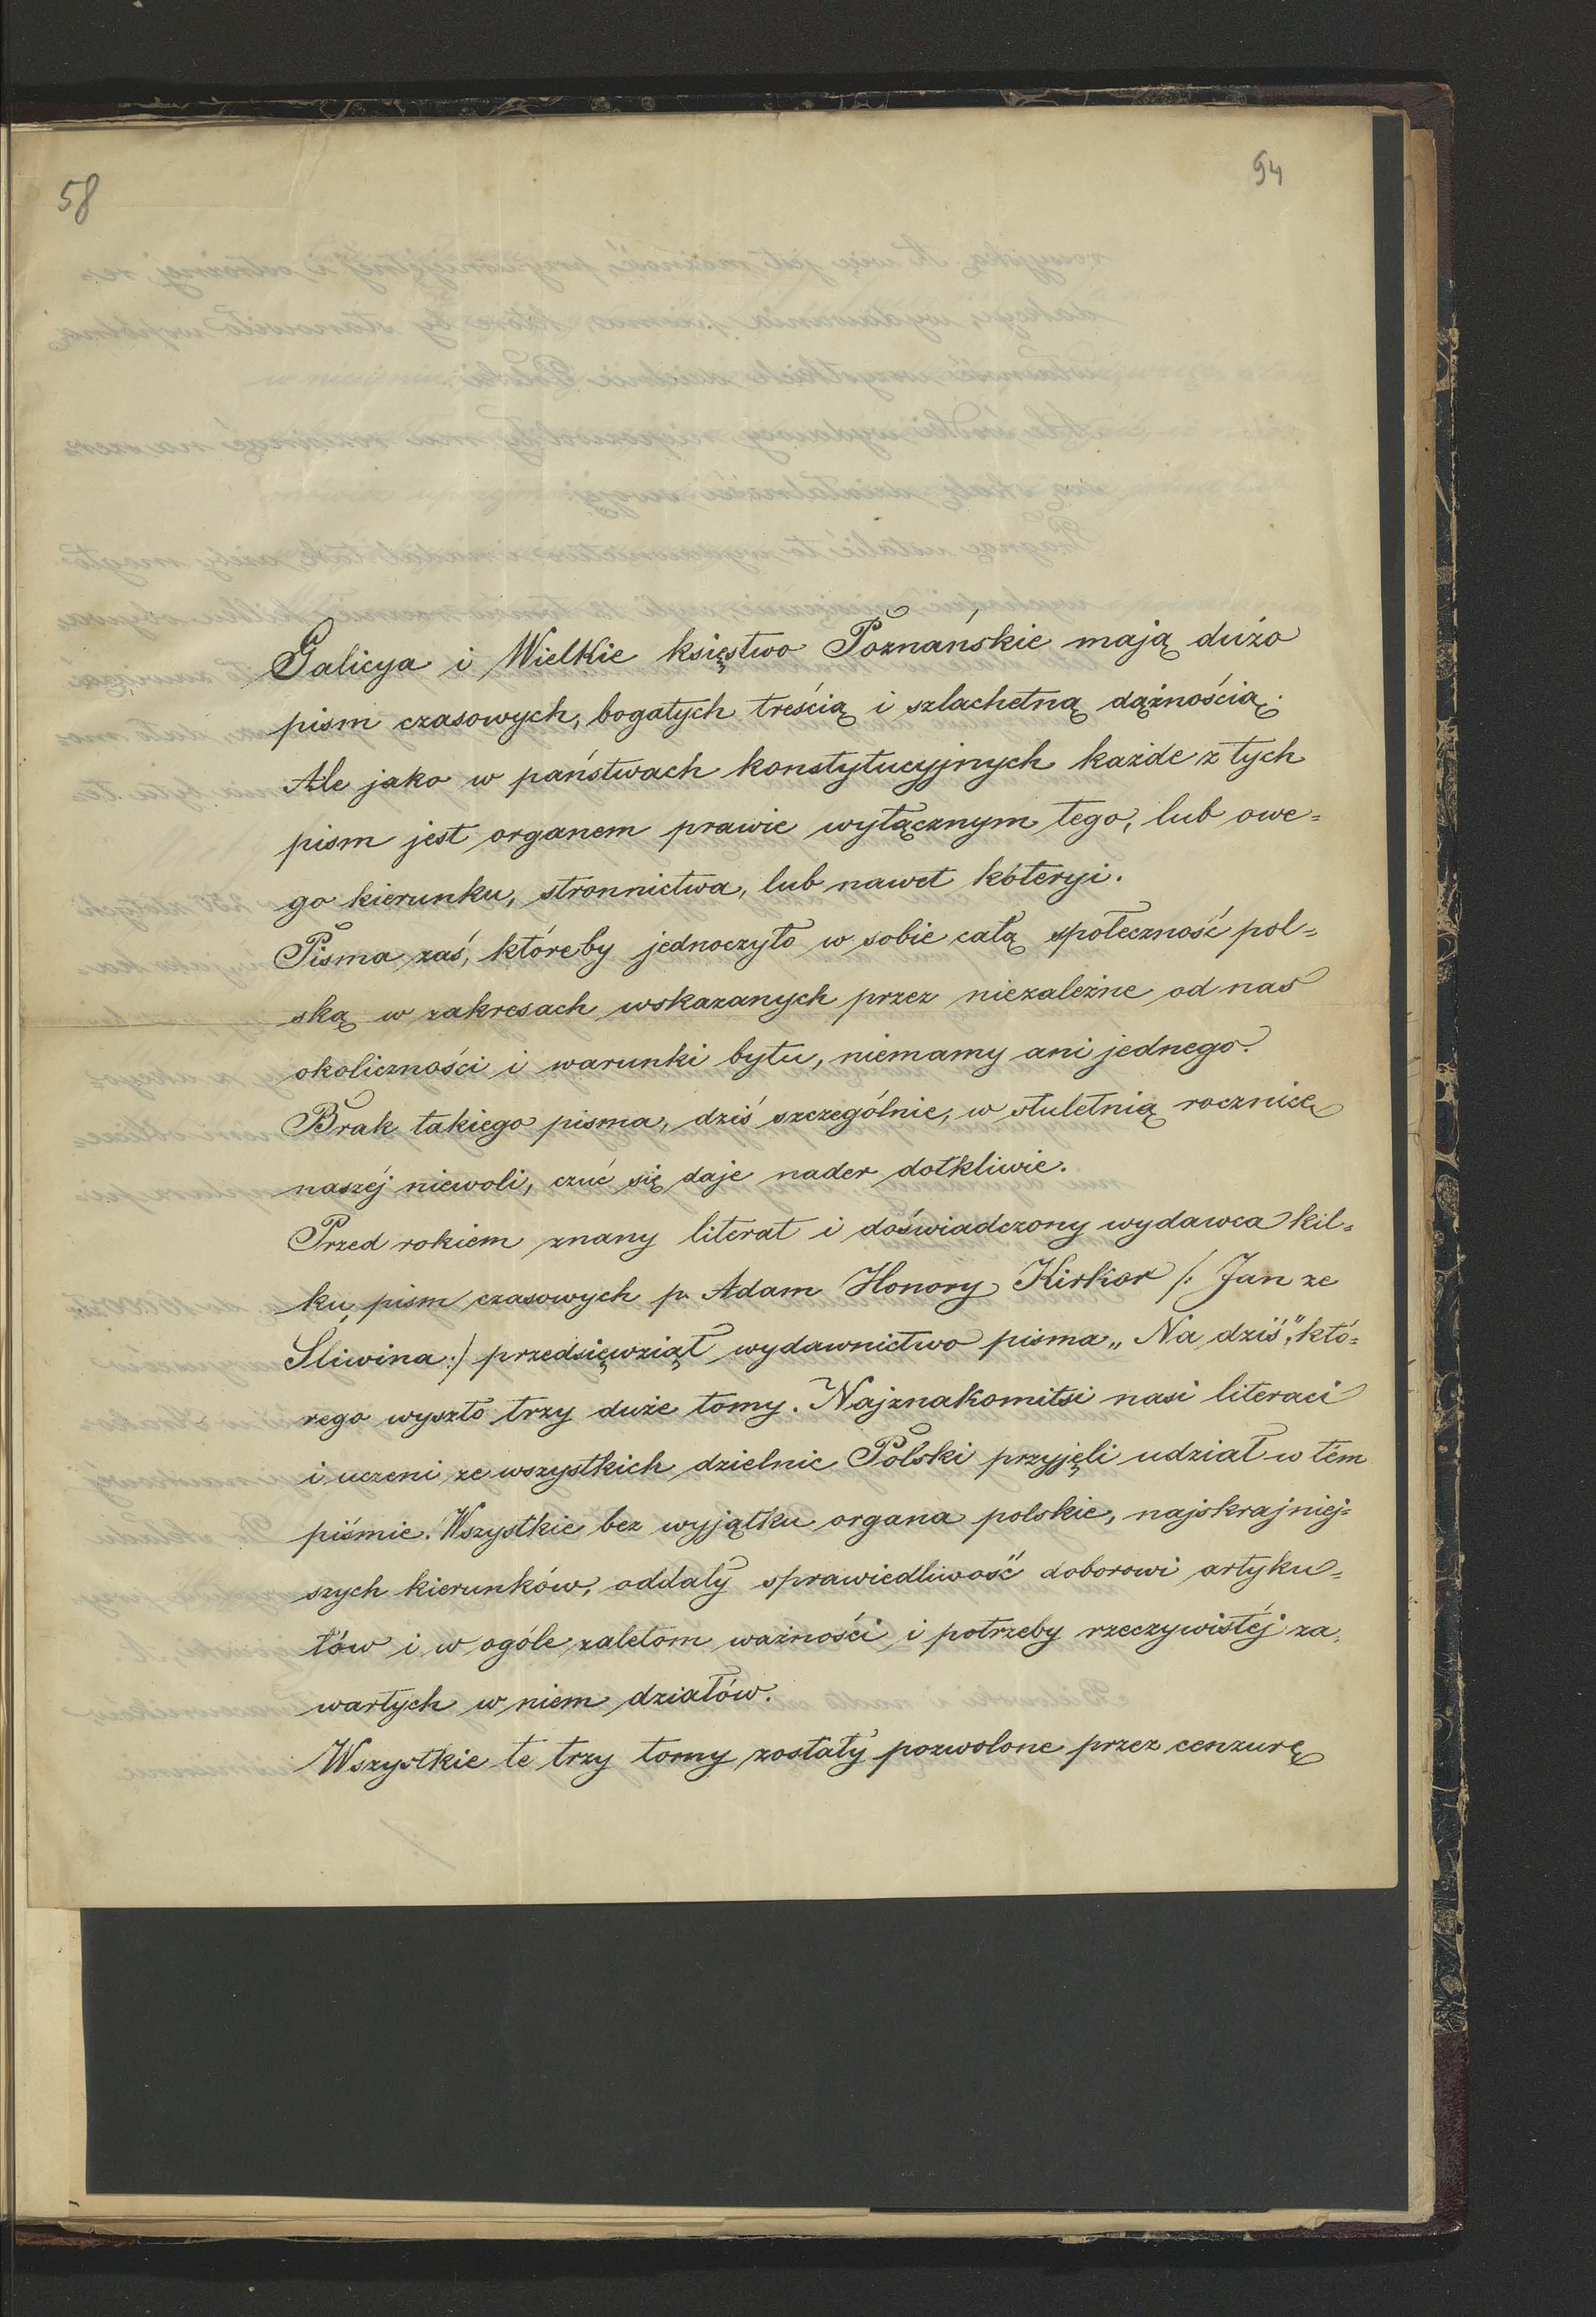 58
94
Galicya i Wielkie księstwo Poznańskie mają dużo
pism czasowych, bogatych treścią i szlachetną dążnością.
Ale jako w państwach konstytucyjnych każde z tych
pism jest organem prawie wyłącznym tego, lub owe=
go kierunku, stronnictwa, lub nawet koteryi.
Pisma zaś, któreby jednoczyło w sobie całą społeczność pol=
ską w zakresach wskazanych przez niezależne od nas
okoliczności i warunki bytu, niemamy ani jednego.
Brak takiego pisma, dziś szczególnie, w stuletnią rocznicę
naszéj niewoli, czuć się daje nader dotkliwie.
Przed rokiem znany literat i doświadczony wydawca kil=
ku pism czasowych p. Adam Honory Kirkor /: Jan ze
Śliwina :/ przedsięwziął wydawnictwo pisma „Na dziś", któ=
rego wyszło trzy duże tomy. Najznakomitsi nasi literaci
i uczeni ze wszystkich dzielnic Polski przyjęli udział w tém
piśmie. Wszystkie bez wyjątku organa polskie, najskrajniej=
szych kierunków, oddały sprawiedliwość doborowi artyku=
łów i w ogóle zaletom ważności i potrzeby rzeczywistéj za=
wartych w niem działów.
Wszystkie te trzy tomy zostały pozwolone przez cenzurę